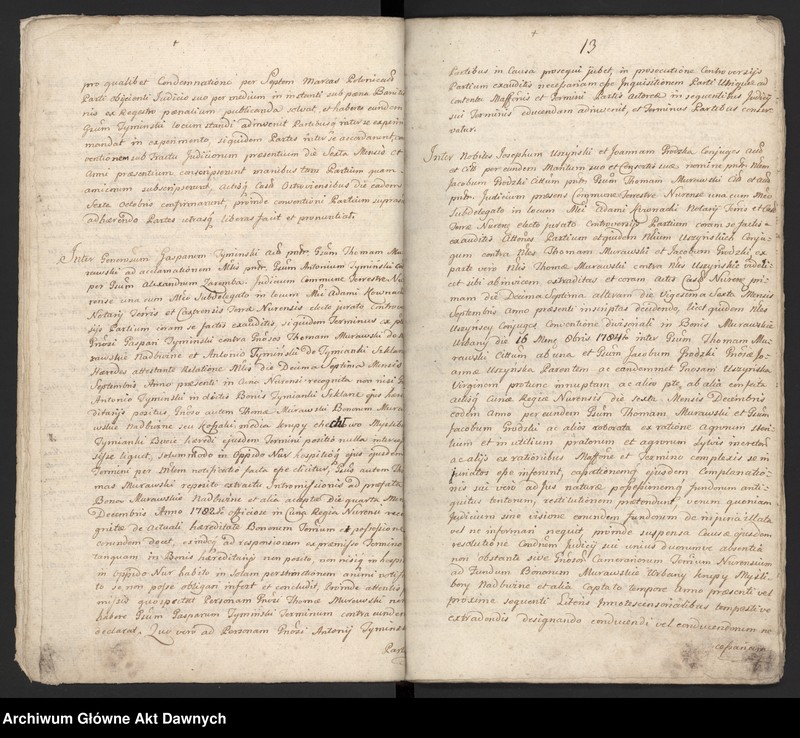 pro qualibet Condemnatione per Septem Marcas Polonicales
Parti objicienti Judicio suo per medium in instanti sub poena Banitio
nis ex Regestr poenalium publicanda solvat, et habere eundem
Gsum Tyminski locum standi adinvenit Partibusq inter se experiri
mandat in experimento, siquidem Partes inter se accedanant, con
ventionem sub Tractu Judiciorum praesentium die Sexta Mensis et
Anni praesentium conscripserunt manibus tam Partium quam
amicorum subscripserunt, actisq Casti Ostroviensibus die eadem
Sexta Octobris confirmarunt, proinde conventioni Partium suprasc
adhaerendo Partes utrasq liberas facit et pronuntiat.
Inter Generosum Gasparum Tyminski Act pntr. Gsum Thomam Mu
rawski ad acclamationem Mtlis pntr. Gsum Antonium Tyminski Cit
per Gsum Alexandrum Zaremba. Judicium Commune Terrestre Nu
rense una cum Mtio Subdelegato in locum Mtci Adami Kownacki
Notarij Terris et Castrensis Terrae Nurensis electo jurato controver
sijs Partium coram se factis exauditis, siquidem Terminus ex parte
Gnosi Gaspari Tyminski contra Gnosos Thomam Murawski de Mu
rawskie Nadbużne et Antonio Tyminski de Tymianki Seklane
Haeredes attestante Relatione Mtlis die Decima Septima Mensis
Septembris Anno praesenti in Curia Nurensi recognita non nisi Gso
Antonio Tyminski in dictis Bonis Tymianki Seklane ejus haere
ditarijs positus, Indeo autem Thomae Murawski Bonorum Mura
wskie Nadbużne seu Kępy Mystibory
Tymianki Bucie haeredi ejusdem Termini positio nulla interces
sisse liquet, solummodo in oppido Nur hospitioq ejus ejusdem
Termini per Mtlem notificatio facta esse elicitur, Gsus autem Tho
mas Murawski reposito extractu Intromissionis ad praefata
Bona Murawskie Nadbużne et alia accepto Die quarta Mensis
Decembris Anno 1782do officiose in Curia Regia Nurensi recog
nitae de actuali haereditate Bonorum Terrium et possessione
eorundem docet, exindeq ad responsionem ex praemisso Termino
tanquam in Bonis haereditarijs non posito, non nisi in hospitio
in oppido Nur habito in solam perstrinctionem animi notificato
to se non posse obligari infert et concludit, Proinde attentis prae
missis quo spectat Personam Gnosi Thomae Murawski non
habere Gsum Gasparum Tyminski Terminum contra eundem
declarat. Quo vero ad Personam Gnosi Antonij Tyminski
Parti
13
Partibus in Causa prosequi jubet, in prosecutione Controversijs
Partium exauditis necessariam esse Inquisitionem Parti Utriq ad
contenta Staffionis et Termini Partis actoreae in sequentibus Judicij
sui Terminis educendam adinvenit, et Terminus Partibus conser
vatur.
Inter Nobiles Josephum Uszyński et Joannam Grodzka Conjuges Act
et Cit. per eundem Maritum suo et Consortis suae nomine pntr. Nlem
Jacobum Grodzki Citum pntr. Gsum Thomam Murawski Cit. et Act
pntr. Judicium praesens Commune Terrestre Nurense una cum Mtio
Subdelegato in locum Mtci Adami Kownacki Notarij Terris et Cast
Terrae Nurens electo jurato Controversijs Partium coram se factis
exauditis Attento Partium et quidem Nlium Uszyńskich Conju
gum contra Nles Thomam Murawski et Jacobum Grodzki, ex
parte vero Nlis Thomae Murawski contra Nles Uszyńskie videli
cet sibi ad invicem, extraditas et coram actis Cast Nurens, pri
mam die Decima Septima alteram die Vigesima Sexta Mensis
Septembris Anno praesenti inscriptas decidendo, licet quidem Nles
Uszynscy Conjuges Conventione divisionali in Bonis Murawskie
Urbany die 16 Mens 8bris 1784to inter Gsum Thomam Mu
rawski Citum ab una et Gsum Jacobum Grodzki Gnosae Jo
annae Uszynska Parentem ac condemniet Gnosam Uszynska
Virginem protunc innuptam ac alias pte, ab alia emfata
actisq Curiae Regiae Nurensis die Sexta Mensis Decembris
eodem Anno per eundem Gsum Thomam Murawski et Gsum
Jacobum Grodzki ac alios roborata ex ratione Agrorum steri
lium et in utilium pratorum et agrorum Sylvis incretum
ac alijs ex rationibus Staffione et Termino complexis se in
juriatos esse inferunt, cassationemq ejusdem Complanatio
nis sui vero ad jus naturae possessionemq fundorum anti
quitus tentorum, restitutionem praetendunt, verum quoniam
Judicium sine visione eorundem fundorum de injuria illata
vel ne informari nequit, proinde suspensa Causae ejusdem
resolutione Condnem Judicij sui unius duorumve absentia
non obstante sive Gnosos Camerariorum Terrium Nurensium
ad Fundum Bonorum Murawskie Urbany Kempy Mysti
bory Nadbużne et alia Captato tempore Anno praesenti vel
proxime sequenti Literis Innotescensionalibus tempestive
extradendis designando conducendi vel conducendorum ne
cessariam